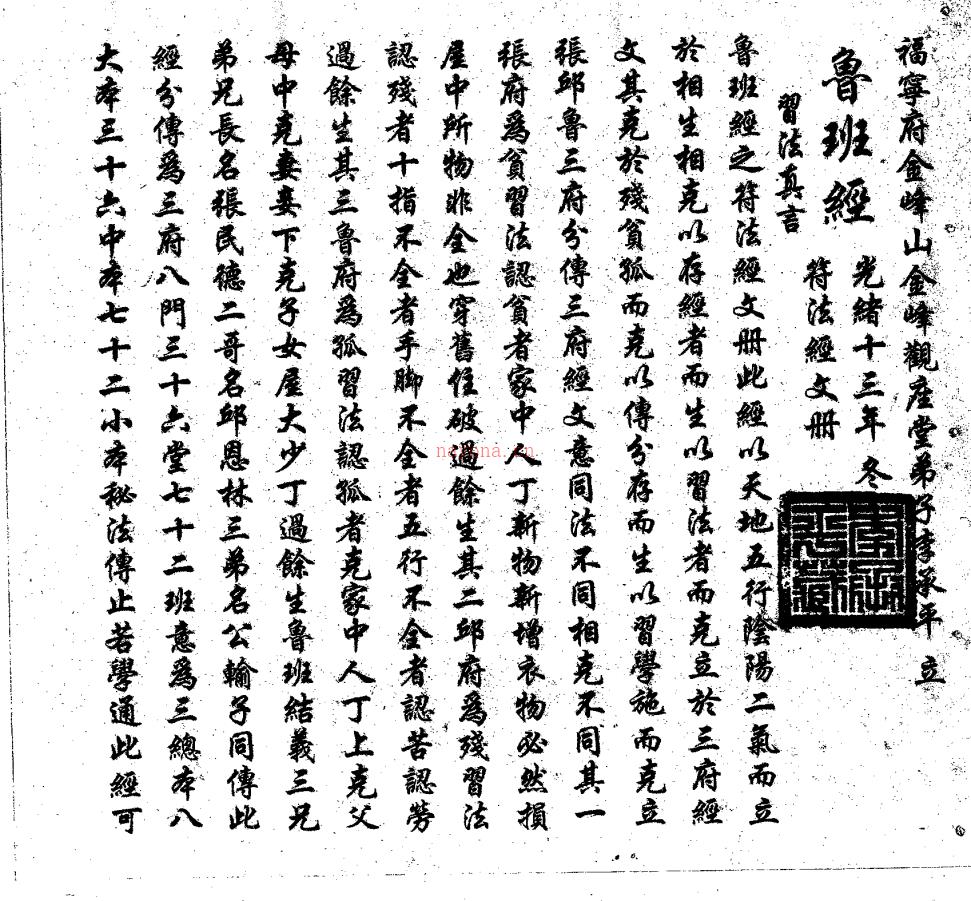 福寧府金峰山金峰觀座堂弟子李承平 立
魯班經 光緒十三年 冬
習法真言 符法經文册
魯班經之符法經文册此經以天地五行陰陽二氣而立
於相生相克以存經者而生以習法者而克立於三府經
文其克於殘貧孤而克以傳分存而生以習學施而克立
張邱魯三府分傳三府經文意同法不同相克不同其一
張府爲貧習法認貧者家中人丁新物新增衣物必然損
屋中所物非全也穿舊住破過餘生其二邱府爲殘習法
認殘者十指不全者手脚不全者五行不全者認苦認勞
過餘生其三魯府爲孤習法認孤者克家中人丁上克父
母中克妻妾下克子女屋大少丁過餘生魯班結義三兄
弟兄長名張民德二哥名邱恩林三弟名公輸子同傳此
經分傳爲三府八門三十六堂七十二班意爲三總本八
大本三十六中本七十二小本秘法傳止若學通此經可